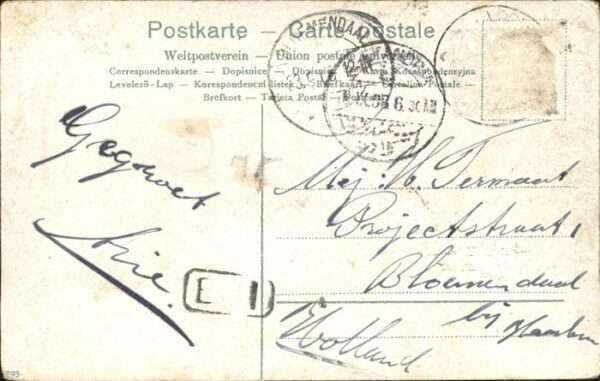 Postkarte – Carte postale
Weltpostverein – Union postale universelle
Correspondenzkarte – Dopisnice – Dopisnica – Karta Korespondencyjna
Levelező-Lap – Korespondenční lístek – Brefkaart – Cartolina Postale –
Brefkort – Tarjeta Postal
MENDAAL
6. 30 AM
Gegroet
Arie.
Mej. W. Termaat
Projectstraat 1
Bloemendaal
bij Haarlem
Holland
E 1